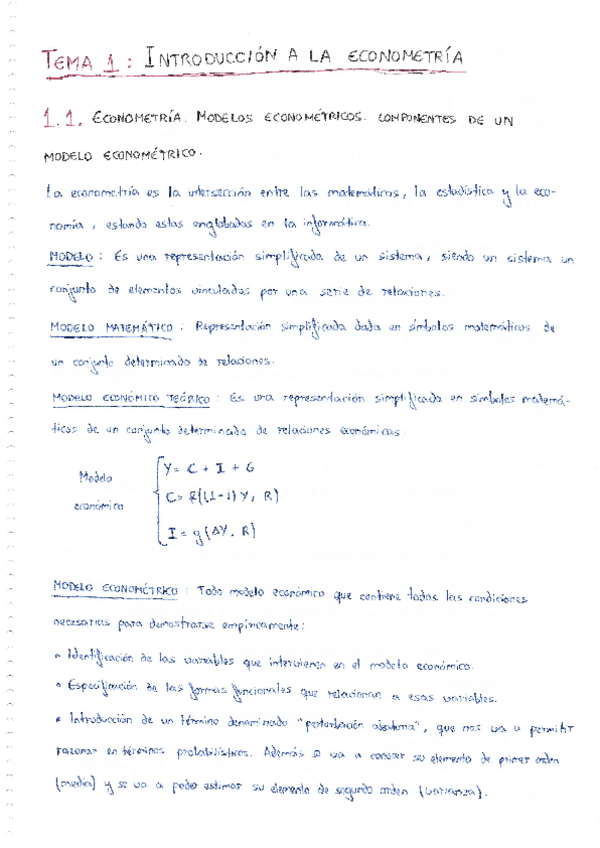 TEMA 1: INTRODUCCIÓN A LA ECONOMETRÍA
1.1. ECONOMETRÍA. MODELOS ECONOMÉTRICOS. COMPONENTES DE UN
MODELO ECONOMÉTRICO.
La econometría es la intersección entre las matemáticas, la estadística y la eco-
nomía, estando estas englobadas en la informática.
MODELO: Es una representación simplificada de un sistema, siendo un sistema un
conjunto de elementos vinculados por una serie de relaciones.
MODELO MATEMÁTICO: Representación simplificada dada en símbolos matemáticos de
un conjunto determinado de relaciones.
MODELO ECONÓMICO TEÓRICO: Es una representación simplificada en símbolos matemá-
ticos de un conjunto determinado de relaciones económicas.
Modelo económico
Y = C + I + G
C = f((1-t)Y, R)
I = g(ΔY, R)
MODELO ECONOMÉTRICO: Todo modelo económico que contiene todas las condiciones
necesarias para demostrarse empíricamente:
• Identificación de las variables que intervienen en el modelo económico.
• Especificación de las formas funcionales que relacionan a esas variables.
• Introducción de un término denominado "perturbación aleatoria", que nos va a permitir
razonar en términos probabilísticos. Además se va a conocer su elemento de primer orden
(media) y se va a poder estimar su elemento de segundo orden (varianza).